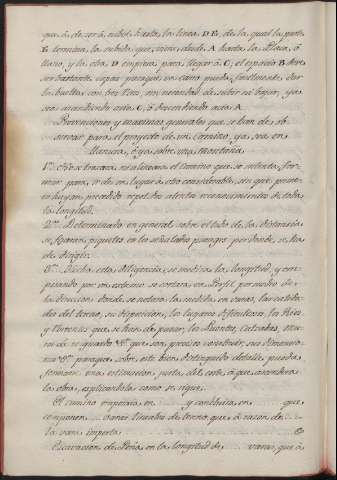 que á de ser á nibel hasta la linea D E, de la qual la parte
E termina la subida que viene desde A hasta la Plaza, ó
llano, y la otra D empieza para llegar á C; el espacio B debe
ser bastante capaz para que un carro pueda facilmente dar
la buelta con tres tiros sin necesidad de subir ni bajar, ya
sea acia C, ó acia A.
Prevenciones y maximas generales que se han de ob=
servar para el proyecto de un Camino, ya sea en
llanura, ó ya sobre una montaña
1ª No se trazara ni alineara el Camino que se intenta for=
mar para ir de un lugar á otro considerable, sin que prime=
ro hayan precedido repetidos atentos reconocimientos de toda
la longitud.
2ª Determinado en general sobre el todo de la distancia
se fixaran piquetes en los señalados parages por donde se ha
de dirigir.
3ª Hecha esta diligencia, se medira la longitud, y em=
pezando por un extremo se cortara en Perfil por medio de
la direccion donde se notara la medida en varas, las calida=
des del terreno, su disposicion, los lugares dificultosos, los Rios
y Torrentes que se han de pasar, los Puentes, Calzadas, mu=
ros de resguardo &ª que son precisos construir, sus dimensio=
nes &ª para que sobre este bien distinguido detalle pueda
formarse una estimacion justa del coste á que ascendera
la obra, explicandola como se sigue.
El camino empezara en y concluira en que
componen varas lineales de terreno, que á razon de
la vara importa
Excavacion de Peña en la longitud de varas, que á